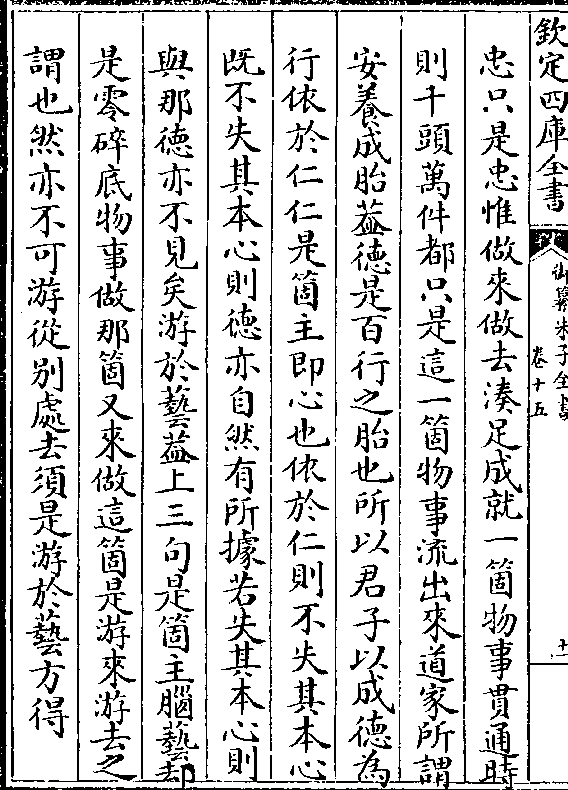 欽定四庫全書
御纂朱子全書
卷十五
十一
忠只是忠惟做來做去湊足成就一箇物事貫通時
則千頭萬件都只是這一箇物事流出來道家所謂
安養成胎葢德是百行之胎也所以君子以成德為
行依於仁仁是箇主即心也依於仁則不失其本心
既不失其本心則德亦自然有所據若失其本心則
與那德亦不見矣游於藝葢上三句是箇主腦藝却
是零碎底物事做那箇又來做這箇是游來游去之
謂也然亦不可游從别處去須是游於藝方得